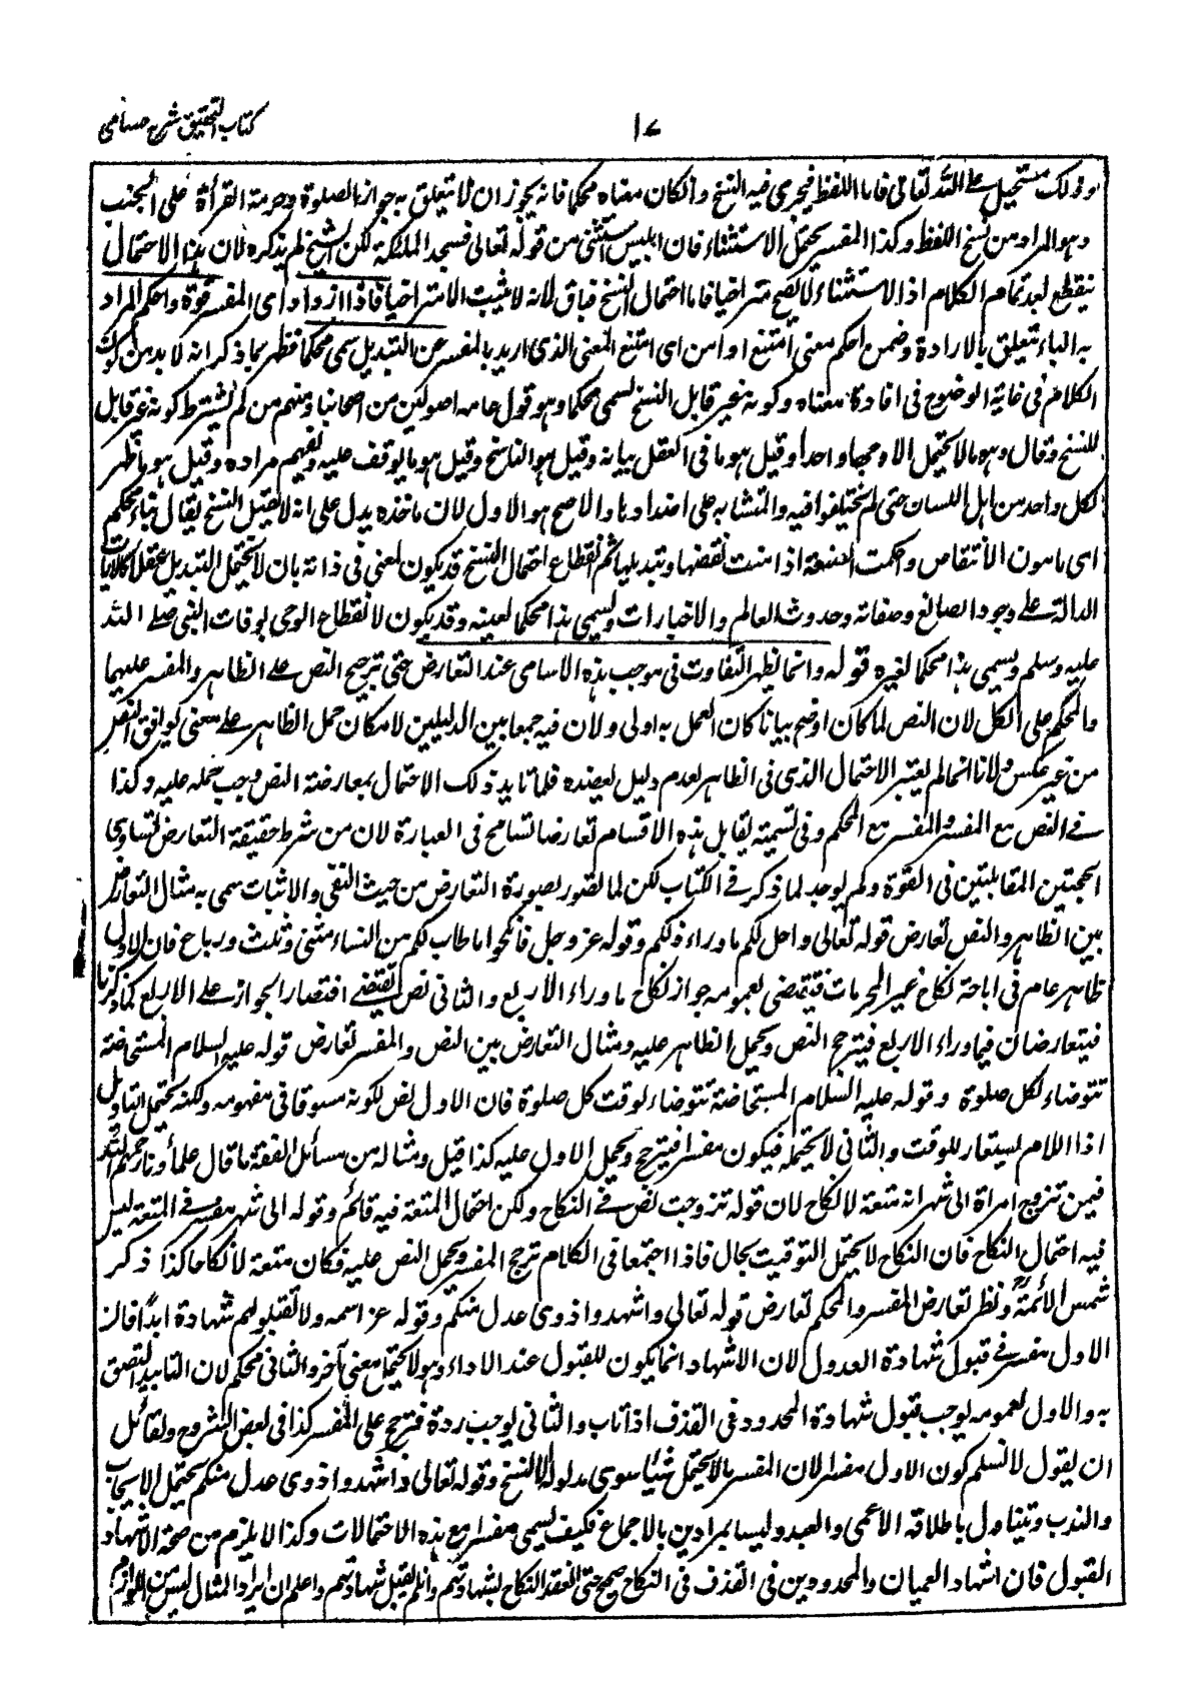 كتاب التحقيق شرح حسامى
١٧
وذلك مستحيل على الله تعالى فاما اللفظ فيجرى فيه النسخ وان كان معناه محكما فانه يجوز ان لا يتعلق به جواز الصلوة وحرمة القرأة على الجنب
وهو المراد من نسخ اللفظ وكذا المفسر يحتمل الاستثناء فان ابليس استثنى من قوله تعالى فسجد الملئكة لكن الشيخ لم يذكره لان هذا الاحتمال
ينقطع بعد تمام الكلام اذ الاستثناء لا يصح متراخيا فاما احتمال النسخ فباق لانه لا يثبت الا متراخيا فاذا ازداد اى المفسر قوة واحكم المراد
به الباء يتعلق بالارادة وضمن احكم معنى امتنع او امن اى امتنع المعنى الذى اريد بالمفسر عن التبديل سمى محكما فظهر بما ذكر انه لا بد من كون
الكلام فى غاية الوضوح فى افادة معناه وكونه غير قابل النسخ ليسمى محكما وهو قول عامه اصوليين من اصحابنا ومنهم من لم يشترط كونه غير قابل
للنسخ وقال وهو مالا يحتمل الا وجها واحدا وقيل هو ما فى العقل بيانه وقيل هو الناسخ وقيل هو ما يوقف عليه ويفهم مراده وقيل هو ما ظهر
لكل واحد من اهل اللسان حتى لم يختلفوا فيه والمتشابه على اضدادها والاصح هو الاول لان ماخذه يدل على انه لا يحتمل النسخ يقال بناء محكم
اى مامون الانتقاض واحكمت الصنعة اذا امنت نقضها وتبديلها ثم انقطاع احتمال النسخ قد يكون لمعنى فى ذاته بان لا يحتمل التبديل عقلا كالايات
الدالة على وجود الصانع وصفاته وحدوث العالم والاخبارات ويسمى هذا محكما لعينه وقد يكون لانقطاع الوحى بوفات النبى صلى الله
عليه وسلم ويسمى هذا محكما لغيره قوله وانما يظهر التفاوت فى موجب هذه الاسامى عند التعارض حتى يترجح النص على الظاهر والمفسر عليهما
والمحكم على الكل لان النص لما كان اوضح بيانا كان العمل به اولى ولان فيه جمعا بين الدليلين لامكان حمل الظاهر على معنى يوافق النص
من غير عكس ولانا انما لم يعتبر الاحتمال الذى فى الظاهر لعدم دليل يعضده فلما تايد ذلك الاحتمال بمعارضة النص وجب حمله عليه وكذا
فى النص مع المفسر والمفسر مع المحكم وفى تسمية تقابل هذه الاقسام تعارضا تسامح فى العبارة لان من شرط حقيقة التعارض تساوى
الحجتين المتقابلتين فى القوة ولم يوجد لما ذكر فى الكتاب لكن لما تصور بصورة التعارض من حيث النفى والاثبات سمى به مثال التعارض
بين الظاهر والنص تعارض قوله تعالى واحل لكم ما وراء ذلكم وقوله عز وجل فانكحوا ما طاب لكم من النساء مثنى وثلث ورباع فان الاول
ظاهر عام فى اباحة نكاح غير المحرمات فيقتضى بعمومه جواز نكاح ما وراء الاربع والثانى نص يقتضى اقتصار الجواز على الاربع كما ذكرنا
فيتعارضان فيما وراء الاربع فيترجح النص ويحمل الظاهر عليه ومثال التعارض بين النص والمفسر تعارض قوله عليه السلام المستحاضة
تتوضاء لكل صلوة وقوله عليه السلام المستحاضة تتوضاء لوقت كل صلوة فان الاول نص لكونه مسوقا فى مفهومه ولكنه يحتمل التاويل
اذا اللام يستعار للوقت والثانى لا يحتمله فيكون مفسرا فيترجح ويحمل الاول عليه كذا قيل ومثاله من مسائل الفقه ما قال علماؤنا رحمهم الله
فيمن تزوج امراة الى شهر انه متعة لا نكاح لان قوله تزوجت نص فى النكاح ولكن احتمال المتعة فيه قائم وقوله الى شهر مفسر فى المتعة ليس
فيه احتمال النكاح فان النكاح لا يحتمل التوقيت بحال فاذا اجتمعا فى الكلام ترجح المفسر ويحمل النص عليه فكان متعة لا نكاحا كذا ذكر
شمس الائمة ونظر تعارض المفسر والمحكم تعارض قوله تعالى واشهدوا ذوى عدل منكم وقوله عز اسمه ولا تقبلوا لهم شهادة ابدا فان
الاول مفسر فى قبول شهادة العدول لان الاشهاد انما يكون للقبول عند الاداء وهو لا يحتمل معنى آخر والثانى محكم لان التابيد التصق
به والاول بعمومه يوجب قبول شهادة المحدود فى القذف اذا تاب والثانى يوجب رده فترجح على المفسر كذا فى بعض الشروح ولقائل
ان يقول لا نسلم كون الاول مفسرا لان المفسر مالا يحتمل شيأ سوى مدلوله الا النسخ وقوله تعالى واشهدوا ذوى عدل منكم يحتمل الايجاب
والندب ويتناول باطلاقه الاعمى والعبد وليسا بمرادين بالاجماع فكيف يسمى مفسرا مع هذه الاحتمالات وكذا لا يلزم من صحة الاشهاد
القبول فان اشهاد العميان والمحدودين فى القذف فى النكاح صحيح حتى انعقد النكاح بشهادتهم وان لم يقبل شهادتهم واعلم ان ايراد المثال ليس من اللوازم